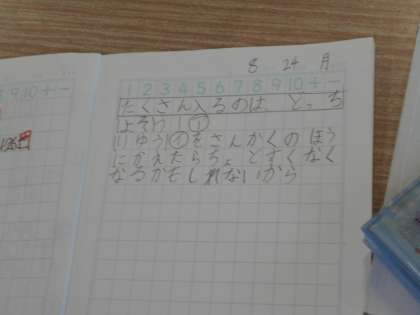 8 24 月
1 2 3 4 5 6 7 8 9 10 + −
たくさん入るのは どっち
よそう ①
りゆう①をさんかくのほう
にかえたらちょとすくなく
なるかもしれないから
9 10 + −